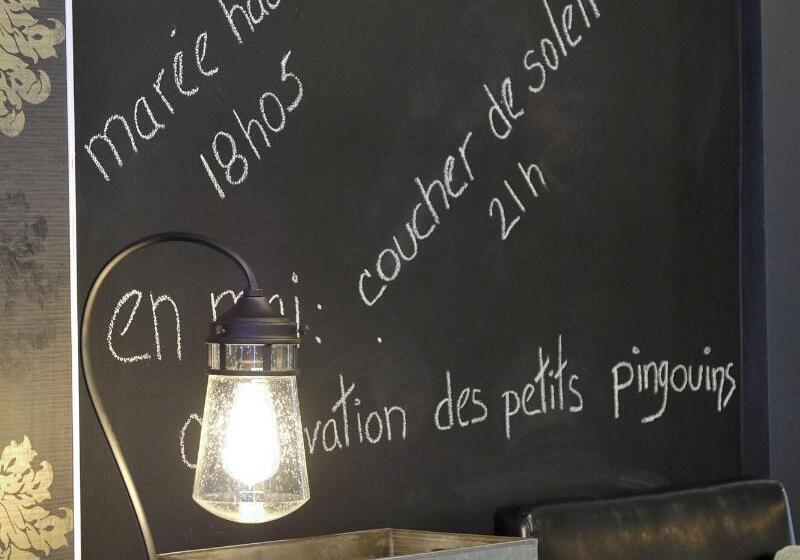 marée
18h05
coucher de soleil
21h
en mai :
des petits pingouins